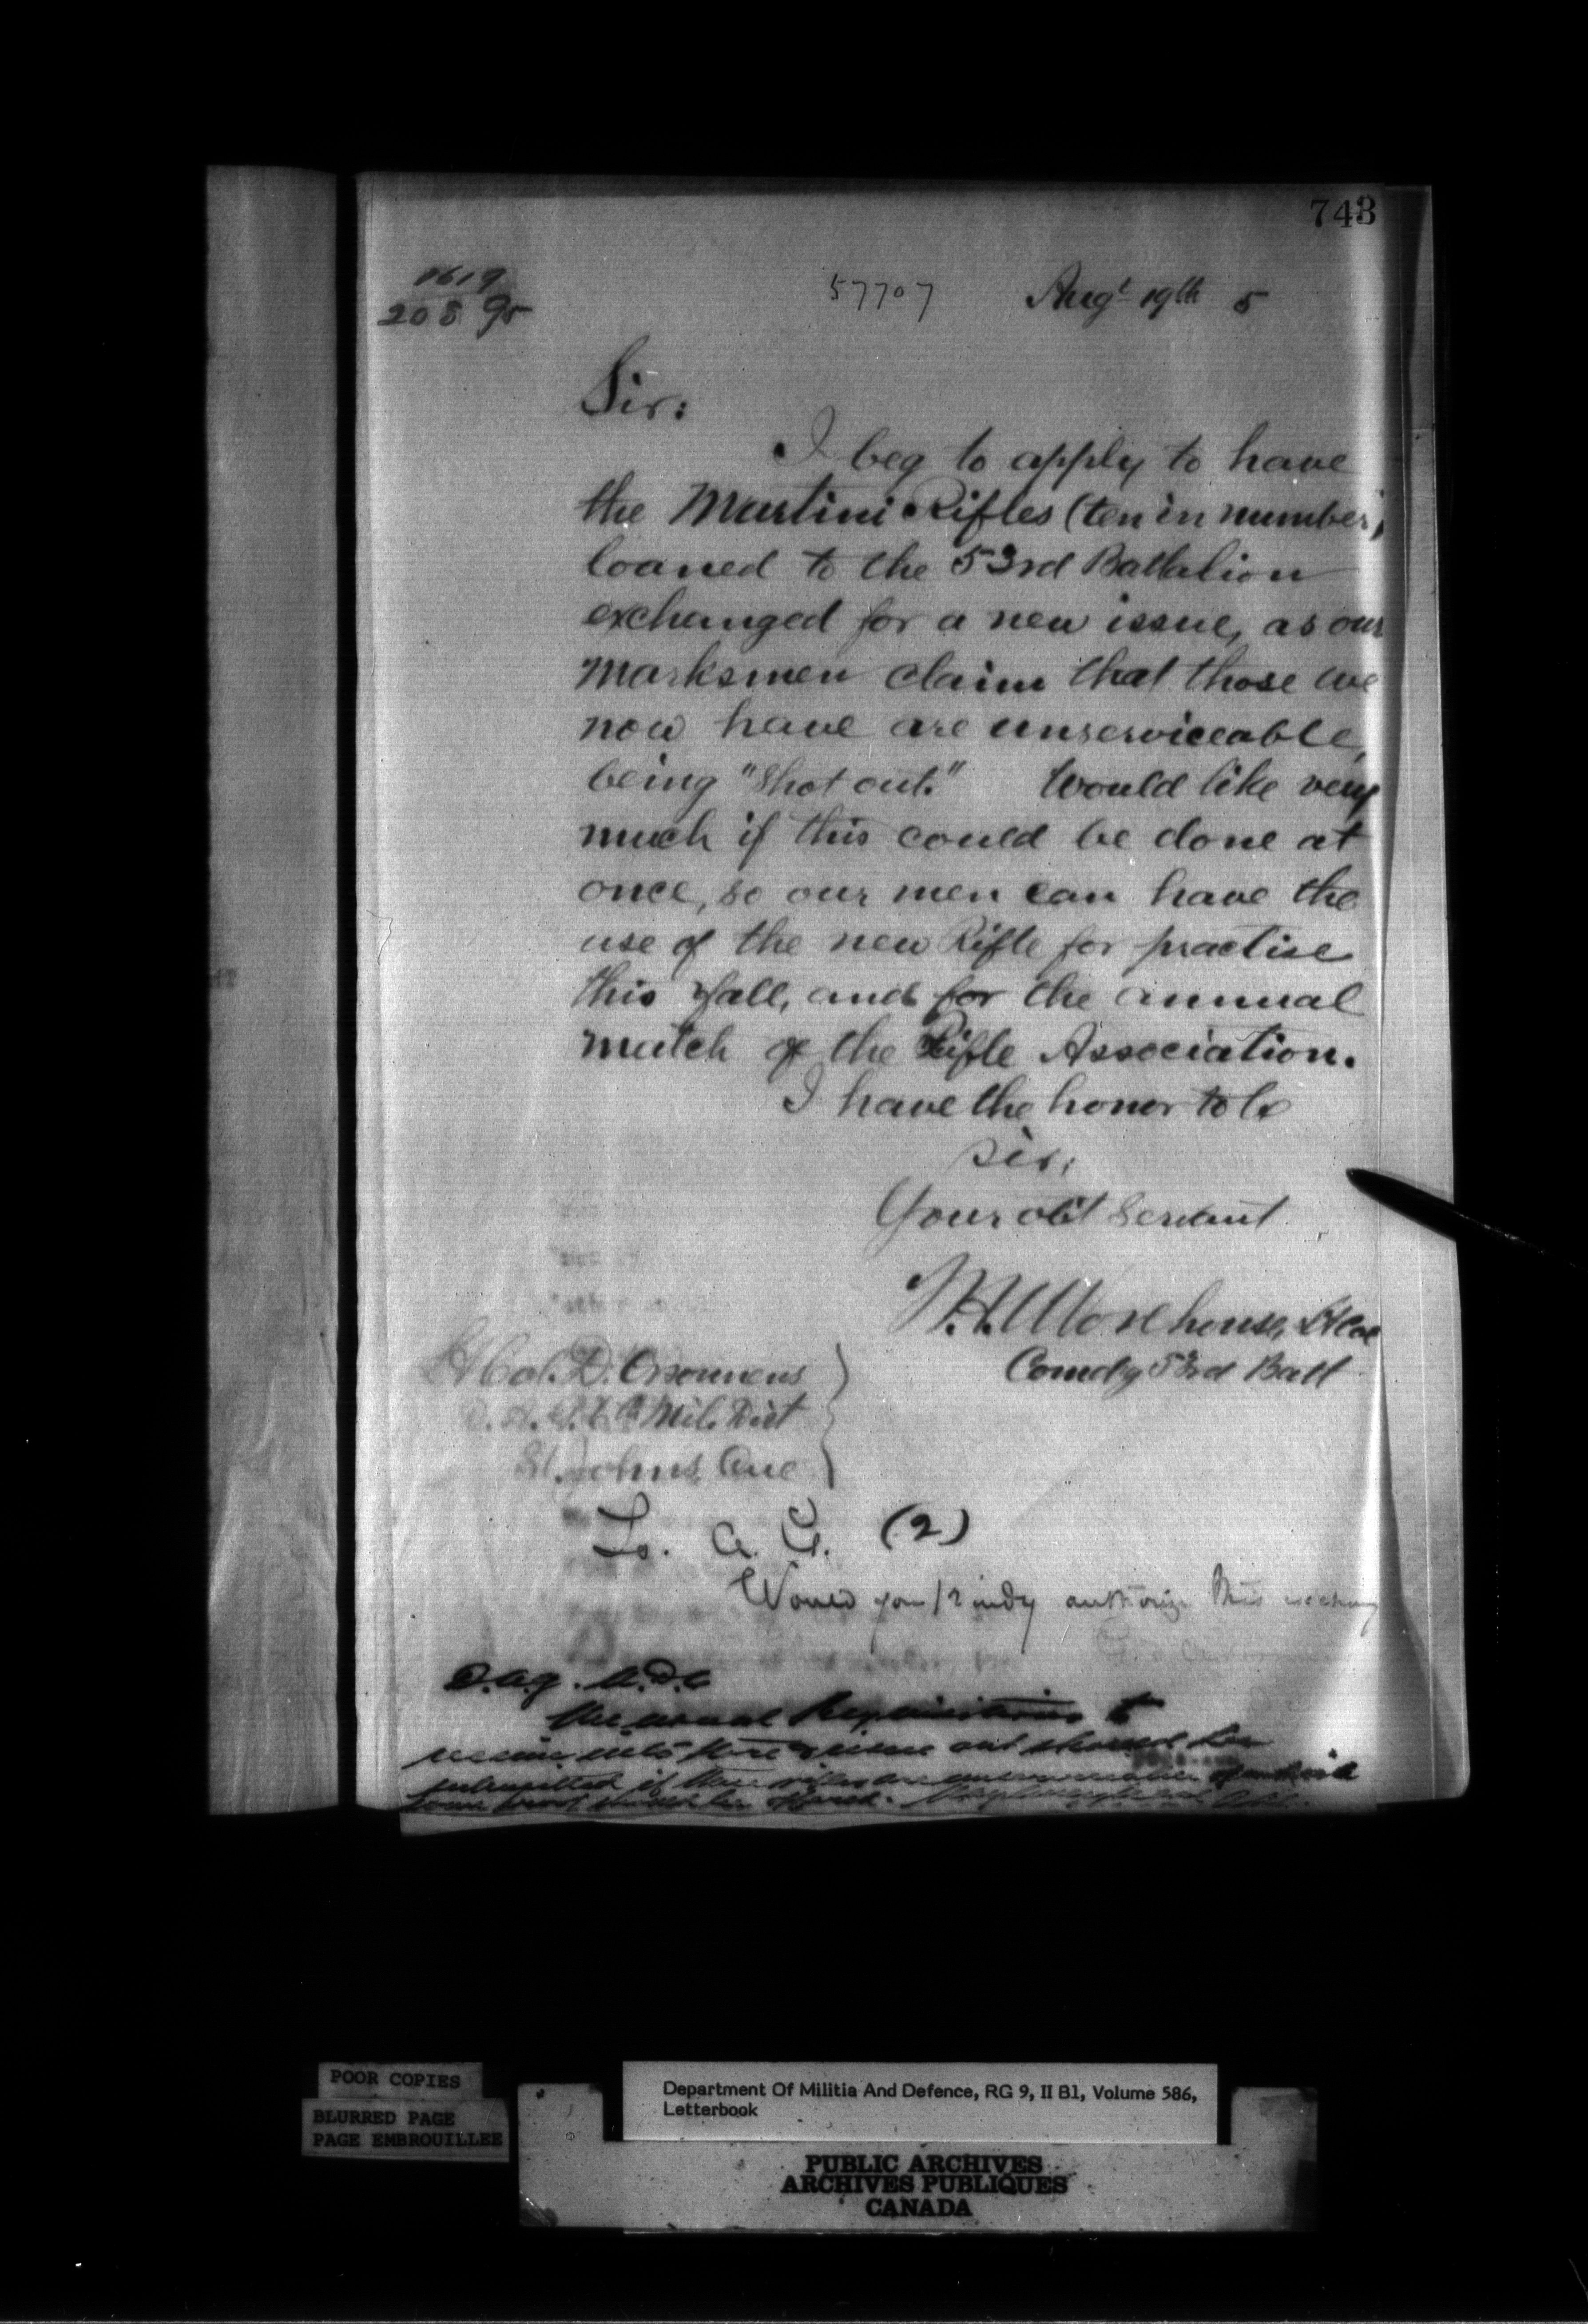 743
1619
20 8 95
57707 Augt 19th 5
Sir:
I beg to apply to have
the Martini Rifles (ten in number)
loaned to the 53rd Battalion
exchanged for a new issue, as our
marksmen claim that those we
now have are unserviceable,
being "Shot out." Would like very
much if this could be done at
once, so our men can have the
use of the new Rifle for practise
this fall, and for the annual
match of the Rifle Association.
I have the honor to be
Sir;
Your obt Servant
Morehouse, Lt Col
Comdg 53rd Batt
Lt Col. D. Orsonnens
D. A. G. 6th Mil. Dist
St. Johns, Que
To. A. G. (2)
Would you kindly authorize this exchang
D.A.G. M.D. 6
The usual Requisitions to
receive into store & issue out should be
submitted if these rifles are unserviceable
some proof should be offered.
POOR COPIES
BLURRED PAGE
PAGE EMBROUILLEE
Department Of Militia And Defence, RG 9, II B1, Volume 586,
Letterbook
PUBLIC ARCHIVES
ARCHIVES PUBLIQUES
CANADA